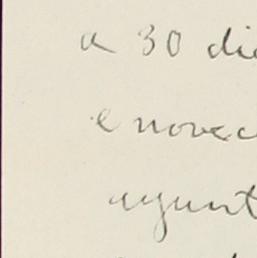 a 30 di
e novec
ayunt